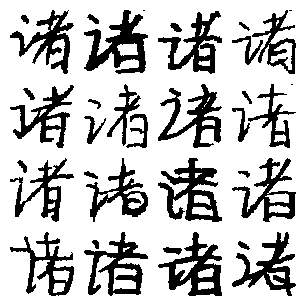 诸诸诸诸
诸诸诸诸
诸诸诸诸
诸诸诸诸